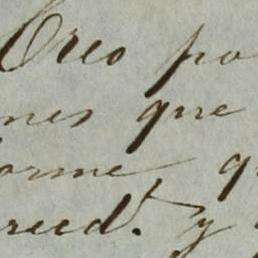 Creo po
nes que
orme q
reed.t y